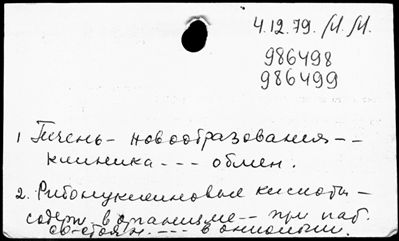 4.12.79. /И. /И.
986498
986499
1 Печень - новообразования --
клиника --- обмен.
2. Рибонуклеиновые кислоты -
содерж. в организме -- при пат.
со-стоян. --- в онкологии.